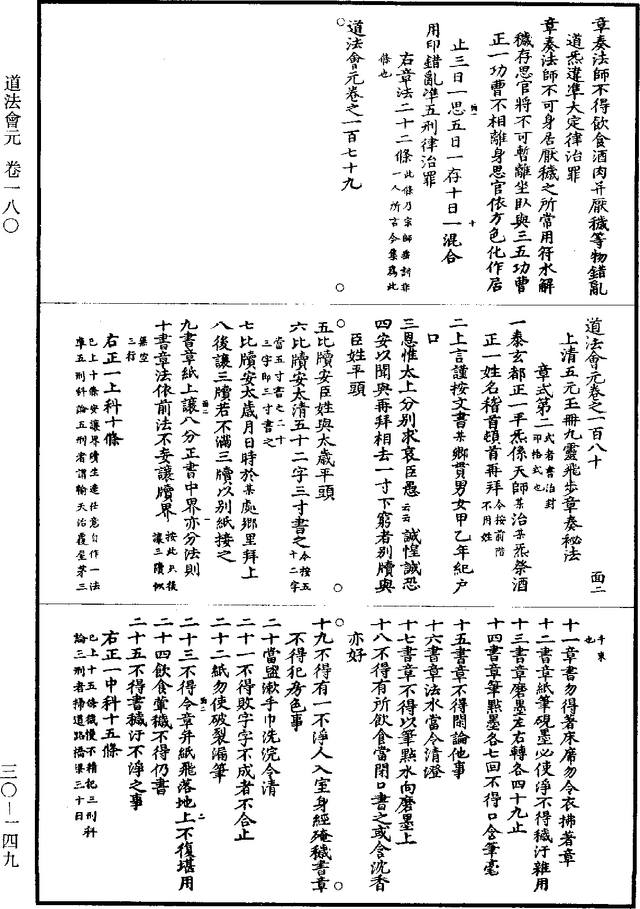 道法會元 卷一八〇
三〇—一四九
章奏法師不得飲食酒肉并厭穢等物錯亂
道炁違準大定律治罪
章奏法師不可身居厭穢之所常用符水解
穢存思官將不可暫離坐臥與三五功曹
正一功曹不相離身思官依方色化作居
止三日一思五日一存十日一混合
用印錯亂準五刑律治罪
右章法二十二條此條乃宗師齋訓非一人所言今集爲此條也
道法會元卷之一百七十九
道法會元卷之一百八十
上清五元玉冊九靈飛步章奏祕法
章式第二式者書治封印格式也
一泰玄都正一平炁係天師某治某炁祭酒
正一姓名稽首頓首再拜令按前階不用姓
二上言謹按文書某鄉貫男女甲乙年紀戶
口
三恩惟太上分別求哀臣愚云云誠惶誠恐
四安以聞與再拜相去一寸下窮者別牘與
臣姓平頭
五比牘安臣姓與太歲平頭
六比牘安太清五十二字三寸書之令按五十二字當五寸書之二十三字即三寸書之
七比牘安太歲月日時於某處鄉里拜上
八後讓三牘若不滿三牘以別紙接之
九書章紙上讓八分正書中界亦分法則
十書章法依前法不安讓牘界按此天後讓三牘似葉空三行
右正一上科十條
已上十條安讓界牘生違任意自作一法準五刑科論五刑者謂輸天治覆屋茅三千束
十一章書勿得著床席勿令衣拂著章
十二書章紙筆硯墨必使淨不得穢汙雜用
十三書章磨墨左右轉各四十九止
十四書章筆點墨各七回不得口含筆毫
十五書章不得閑論他事
十六書章法水當令清澄
十七書章不得以筆點水向磨墨上
十八不得有所飲食當閉口書之或含沈香
亦好
十九不得有一不淨人入室身經殗穢書章
不得犯房色事
二十當盥漱手巾洗浣令清
二十一不得敗字字不成者不合止
二十二紙勿使破裂漏筆
二十三不得令章并紙飛落地上不復堪用
二十四飲食葷穢不得仍書
二十五不得書穢汙不淨之事
右正一中科十五條
已上十五條穢慢不精犯三刑科論三刑者掃道路橋梁三十日